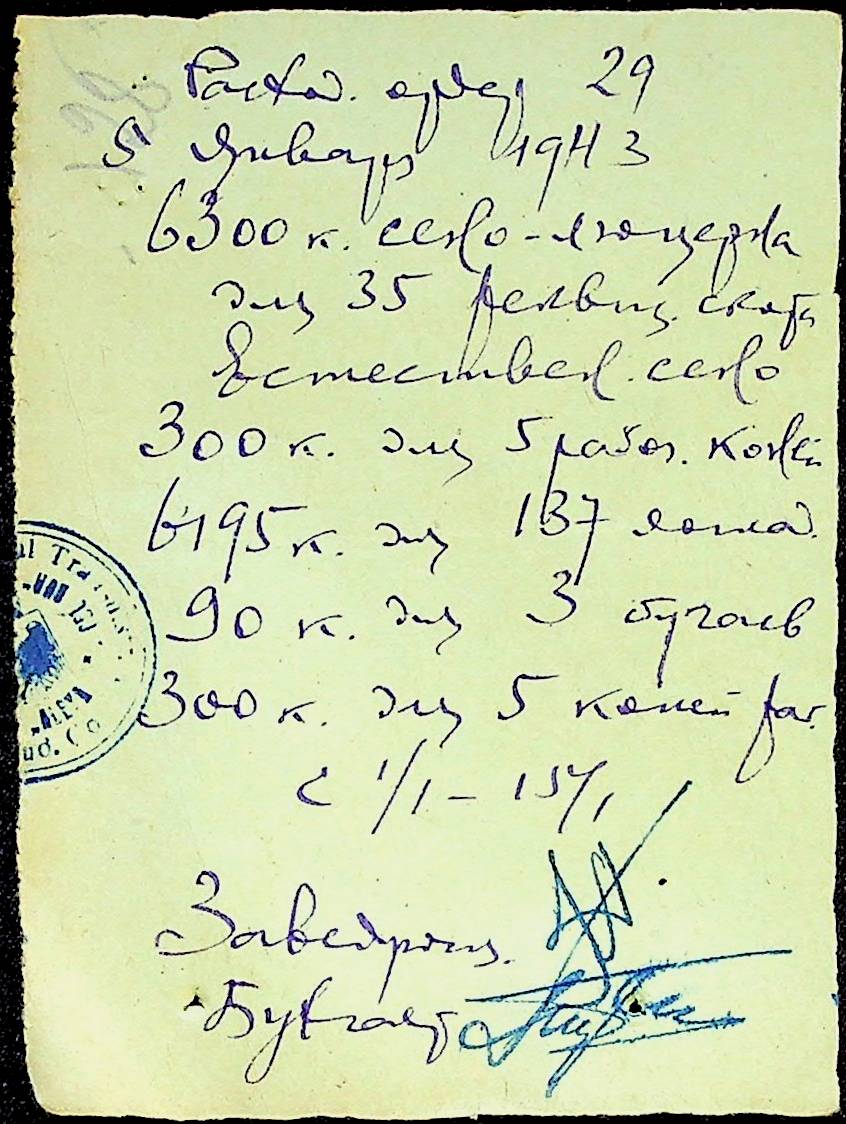 Расход. ордер 29
5 Январь 1943
6300 к. сено-люцерна
для 35 реквиз. скота
Естествен. сено
300 к. для 5 рабоч. коней
6195 к. для 137
90 к. для 3 бугаев
300 к. для 5 коней
с 1/1 – 15/1
Заведующ.
Бухгалт